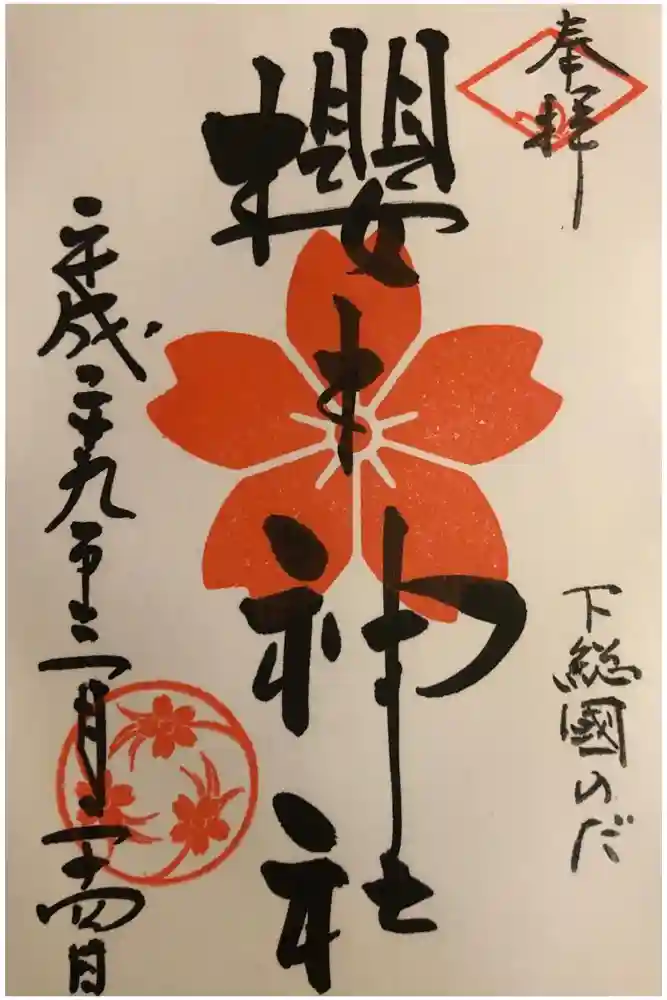 奉拝
下総國のだ
櫻木神社
平成二十九年三月二十四日